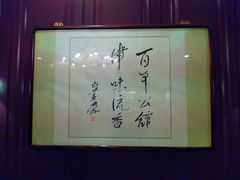 百年公館
津味流香